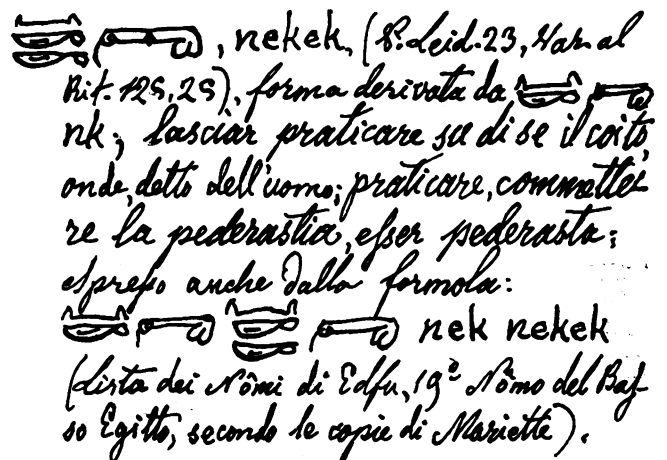 , nekek, (P. Leid. 23, Var. al
Rit. 125, 25), forma derivata da
nk; lasciar praticare su di se il coito,
onde, detto dell'uomo; praticare, commette-
re la pederastia, esser pederasta;
espresso anche dalla formola:
nek nekek
(Lista dei Nômi di Edfu, 19º Nômo del Bas-
so Egitto, secondo le copie di Mariette).